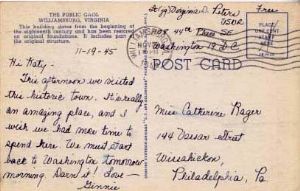 THE PUBLIC GAOL
WILLIAMSBURG, VIRGINIA
This building dates from the beginning of the eighteenth century and has been restored on original foundations. It includes part of its original structure.
11-19-45
Hi Katy,-
This afternoon we visited
this historic town. It's really
an amazing place, and I
wish we had more time to
spend here. We must start
back to Washington tomorrow
morning. Darn it! Love-
Ginnie
Virginia D. Peters
USCR
44th Place SE
Washington 19 D.C.
Free
NOV
POST CARD
Miss Catherine Rager
144 Street
Wissahickon,
Philadelphia, Pa